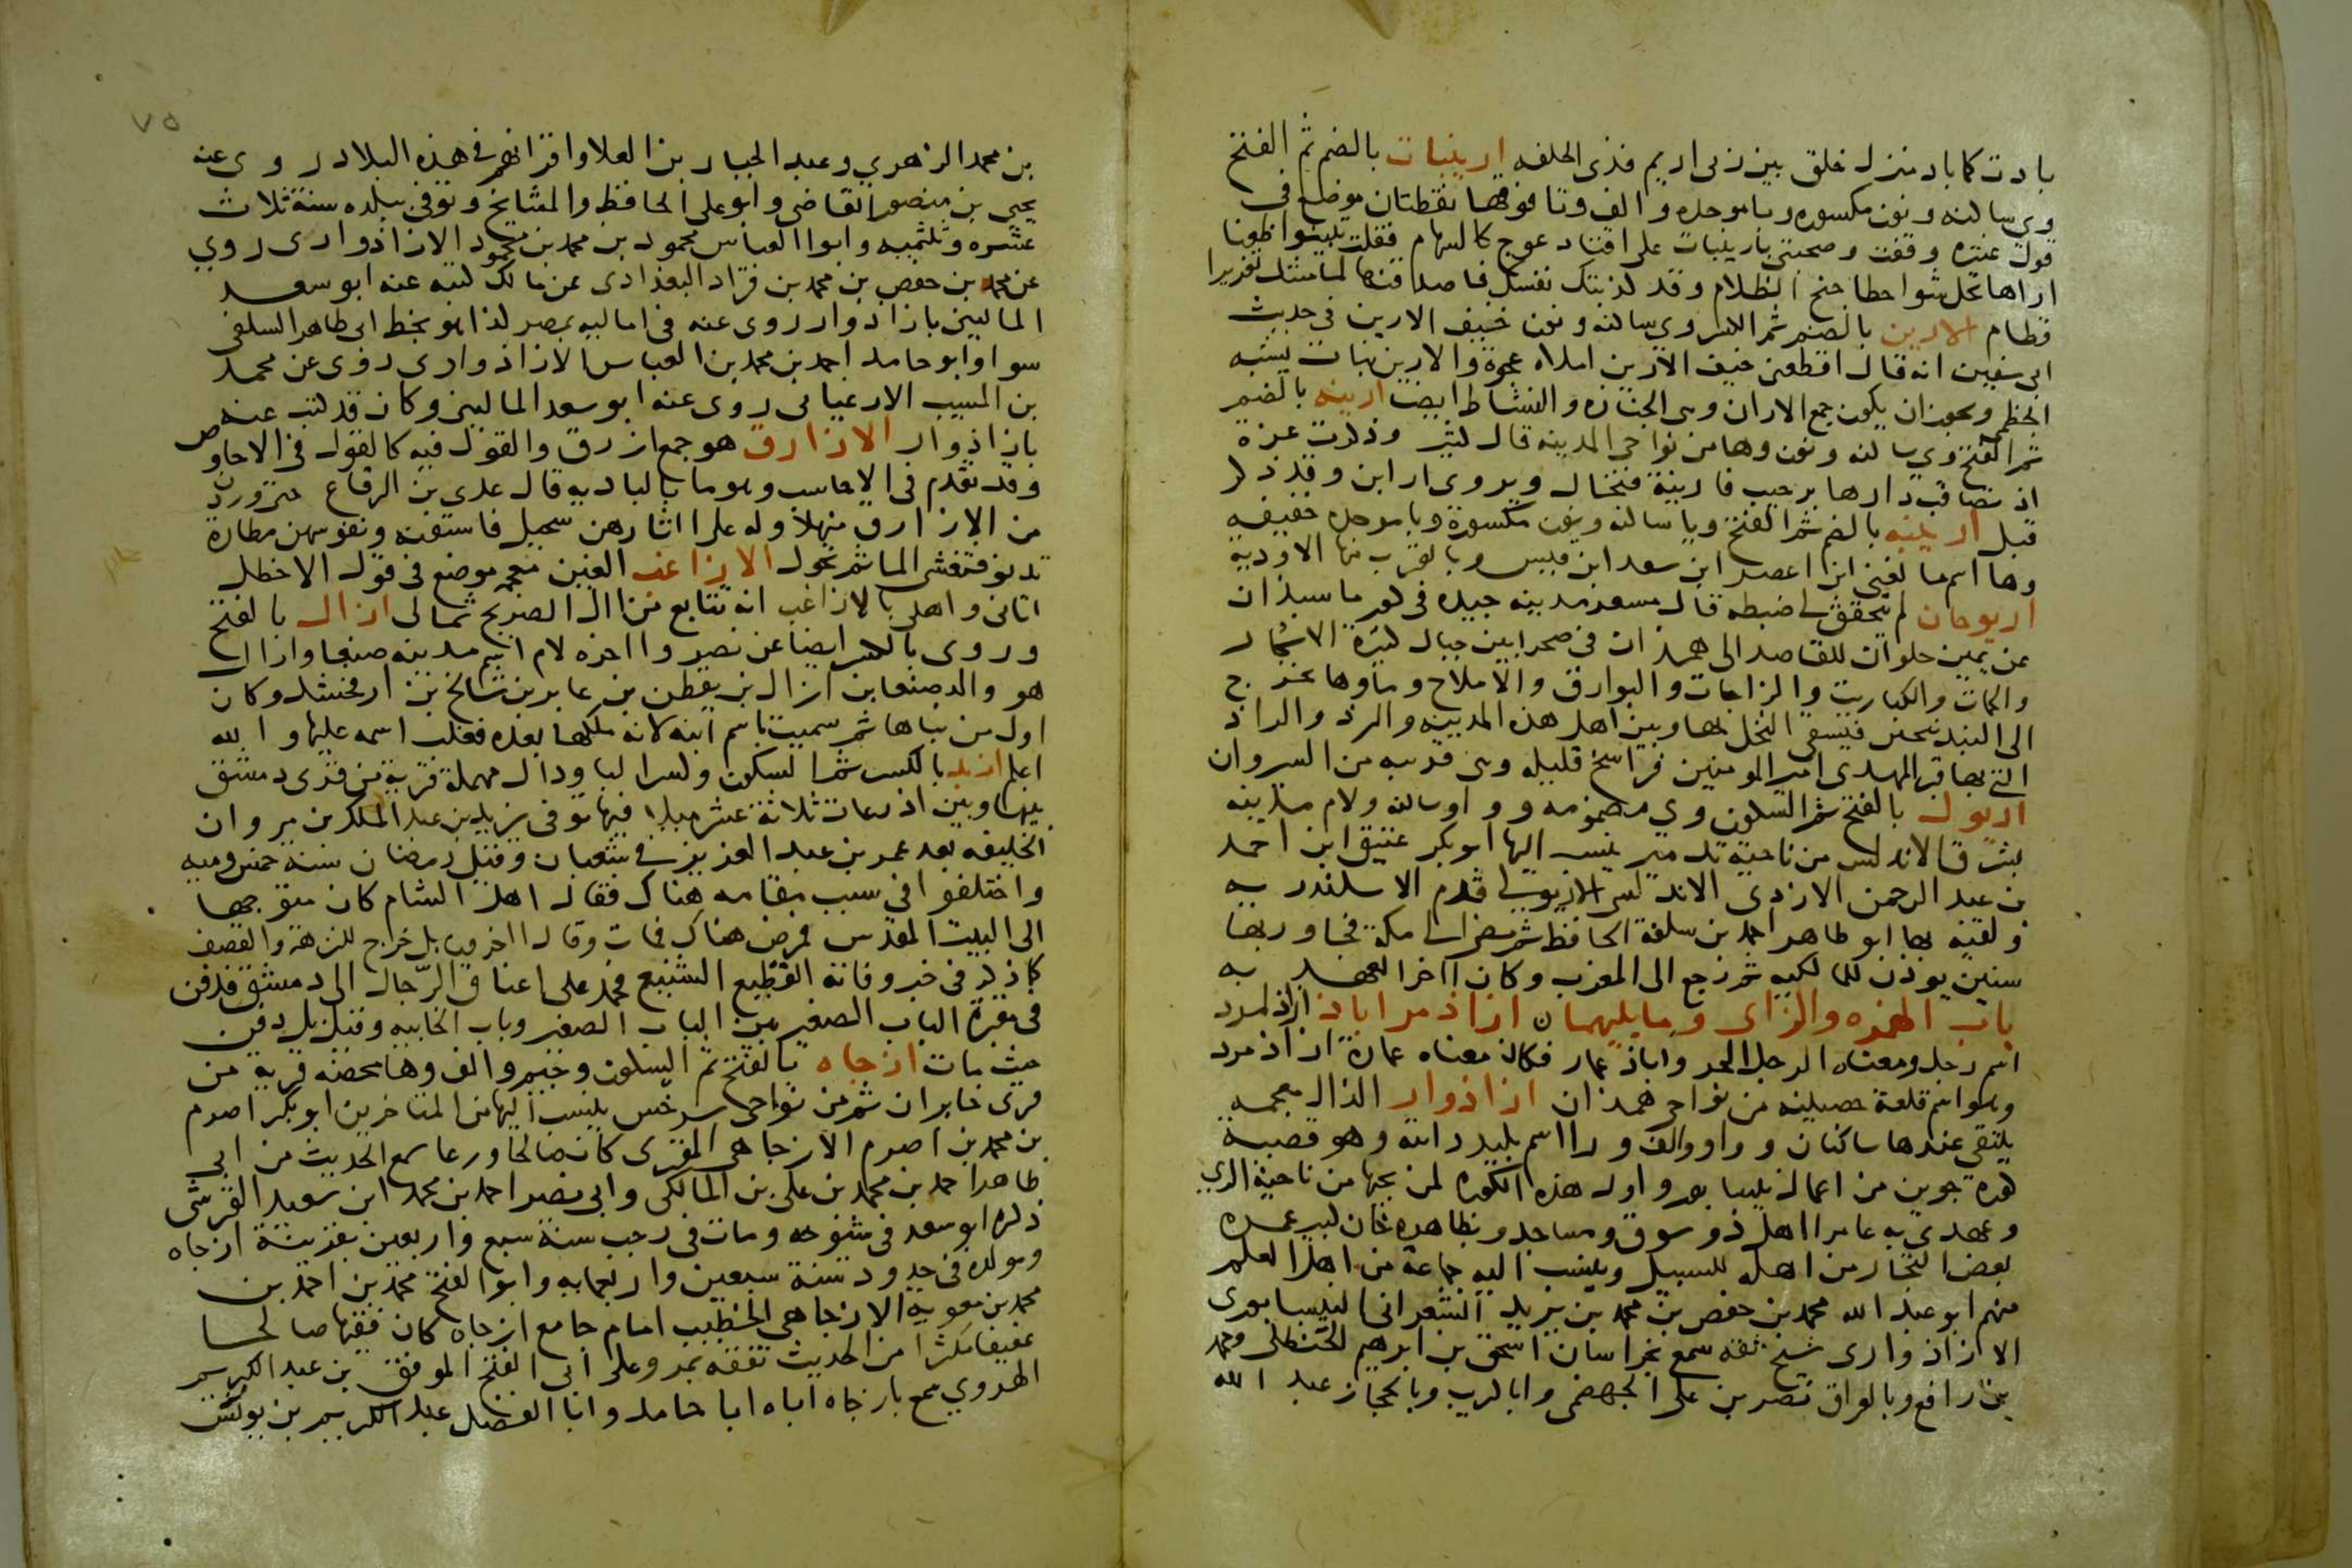 بادت كما باد منزل خلق بين ربى اريم فذى الحلفه ارينبات بالضم ثم الفتح
وى ساكنه ونون مكسوره وبا موحده والف وتا فوقها نقطتان موضع فى
قول عنتره وقفت وصحبتى بارينبات على اقتاد عوج كالسهام فقلت تبينوا ظعنا
اراها تحل شواحطا جنح الظلام وقد كذبتك نفسك فاصدقنها لما منتك تغريرا
قطام الارين بالضم ثم الكسر وى ساكنه ونون خيف الارين فى حديث
ابى سفين انه قال اقطعنى خيف الارين املاه عجوة والارين نبات يشبه
الخطمى ويجوز ان يكون جمع الاران وهى الجنازه والنشاط ايضا ارينه بالضم
ثم الفتح وى ساكنه ونون وها من نواحى المدينه قال كثير وذكرت عزة
اذ تصاقب دارها برحيب فارينة فنخال ويروى ارابن وقد ذكر
قبل ارينبه بالضم ثم الفتح ويا ساكنه ونون مكسورة وبا موحده خفيفه
وها اسم ما لغنى ابن اعصر ابن سعد ابن قيس وبالقرب منها الاودية
اريوجان لم يتحقق لى ضبطه قال مسعر مدينه جيده فى كور ماسبذان
عن يمين حلوان للقاصد الى همذان فى صحرا بين جبال كثيرة الاشجار
والحمات والكباريت والزاجات والبوارق والاملاح وماوها يخرج
الى البندنيجين فيسقى النخل بها وبين اهل هذه المدينه والرذ والراذ
التى بها قبر المهدى امير المومنين فراسخ قليله وهى قريبه من السروان
اريول بالفتح ثم السكون وى مضمومه وواو ساكنه ولام مدينه
بشرق الاندلس من ناحية تدمير ينسب اليها ابو بكر عتيق ابن احمد
بن عبد الرحمن الازدى الاندلسى الاريولى قدم الاسكندريه
ولقيه بها ابو طاهر احمد بن سلفة الحافظ ثم مضى الى مكة فجاور بها
سنين يوذن للمالكيه ثم رجع الى المغرب وكان اخر العهد به
باب الهمزه والزاى وما يليهما ازاذمراباذ ازاذمرد
اسم رجل ومعناه الرجل الحر واباذ عمار فكان معناه عمارة ازاذمرد
وهو اسم قلعة حصينه من نواحى همذان ازاذوار الذال معجمه
يلتقى عندها ساكنان وواو والف ورا اسم بليد رايته وهو قصبة
كورة جوين من اعمال نيسابور واول هذه الكوره لمن يجيها من ناحية الرى
وعهدى به عامرا اهل ذو سوق ومساجد وبظاهره خان كبير عمره
بعض التجار من اهله للسبيل وينسب اليه جماعة من اهل العلم
منهم ابو عبد الله محمد بن حفص بن محمد بن يزيد الشعرانى النيسابورى
الازاذوارى شيخ ثقه سمع بخراسان اسحق بن ابرهيم الحنظلى ومحمد
بن رافع وبالعراق نصر بن على الجهضمى وابا كريب وبالحجاز عبد الله
٧٥
بن محمد الزهري وعبد الجبار بن العلا واقرانهم فى هذه البلاد روى عنه
يحيى بن منصور القاضى وابو على الحافظ والمشايخ وتوفى ببلده سنة ثلاث
عشره وثلثميه وابو العباس محمود بن محمد بن محمود الازاذوارى روي
عن محمد بن حفص بن محمد بن قراد البغدادى عن مالك كتبه عنه ابو سعد
المالينى بازاذوار روى عنه فى اماليه بمصر كذا هو بخط ابى طاهر السلفى
سوا وابو حامد احمد بن محمد بن العباس الازاذوارى روى عن محمد
بن المسيب الارغيانى روى عنه ابو سعد المالينى وكان قد كتب عنه
بازاذوار الازارق هو جمع ازرق والقول فيه كالقول فى الاحاوص
وقد تقدم فى الاحاسب وهو ما بالباديه قال عدى بن الرقاع حتى وردن
من الازارق منهلا وله على اثارهن سحيل فاستفنه ونفوسهن مطارة
تدنو فتغشى الما ثم تحول الازاغب الغين معجمه موضع فى قول الاخطل
اتانى واهلى بالازاغب انه تتابع من ال الصريح ثمانى ازال بالفتح
وروى بالكسر ايضا عن نصر واخره لام اسم مدينه صنعا وازال
هو والد صنعا بن ازال بن يقطن بن عابر بن شالخ بن ارفخشد وكان
اول من بناها ثم سميت باسم ابنه لانه ملكها بعده فغلب اسمه عليها والله
اعلم ازبد بالكسر ثم السكون وكسر البا ودال مهملة قرية من قرى دمشق
بينها وبين اذرعات ثلاثة عشر ميلا فيها توفى يزيد بن عبد الملك بن مروان
الخليفه بعد عمر بن عبد العزيز فى شعبان وقيل رمضان سنة خمس وميه
واختلفوا فى سبب مقامه هناك فقال اهل الشام كان متوجها
الى البيت المقدس فمرض هناك فمات وقال اخرون بل خرج للنزهة والقصف
كما ذكر فى خبر وفاته الفظيع الشنيع فحمل على اعناق الرجال الى دمشق فدفن
فى مقبرة الباب الصغير بين الباب الصغير وباب الجابيه وقيل بل دفن
حيث مات ازجاه بالفتح ثم السكون وجيم والف وها محضه قرية من
قرى خابران ثم من نواحى سرخس ينسب اليها من المتاخرين ابو بكر اصرم
بن محمد بن اصرم الازجاهى المقرى كان صالحا ورعا سمع الحديث من ابي
طاهر احمد بن محمد بن على بن المالكى وابى نصر احمد بن محمد ابن سعيد القرشى
ذكره ابو سعد فى شيوخه ومات فى رجب سنة سبع واربعين بقرية ازجاه
ومولده فى حدود سنة سبعين واربعمايه وابو الفتح محمد بن احمد بن
محمد بن معوية الازجاهى الخطيب امام جامع ازجاه كان فقيها صالحا
عفيفا مكثرا من الحديث تفقه بمرو على ابى الفتح الموفق بن عبد الكريم
الهروي سمع بازجاه اباه ابا حامد وابا الفضل عبد الكريم بن يونس